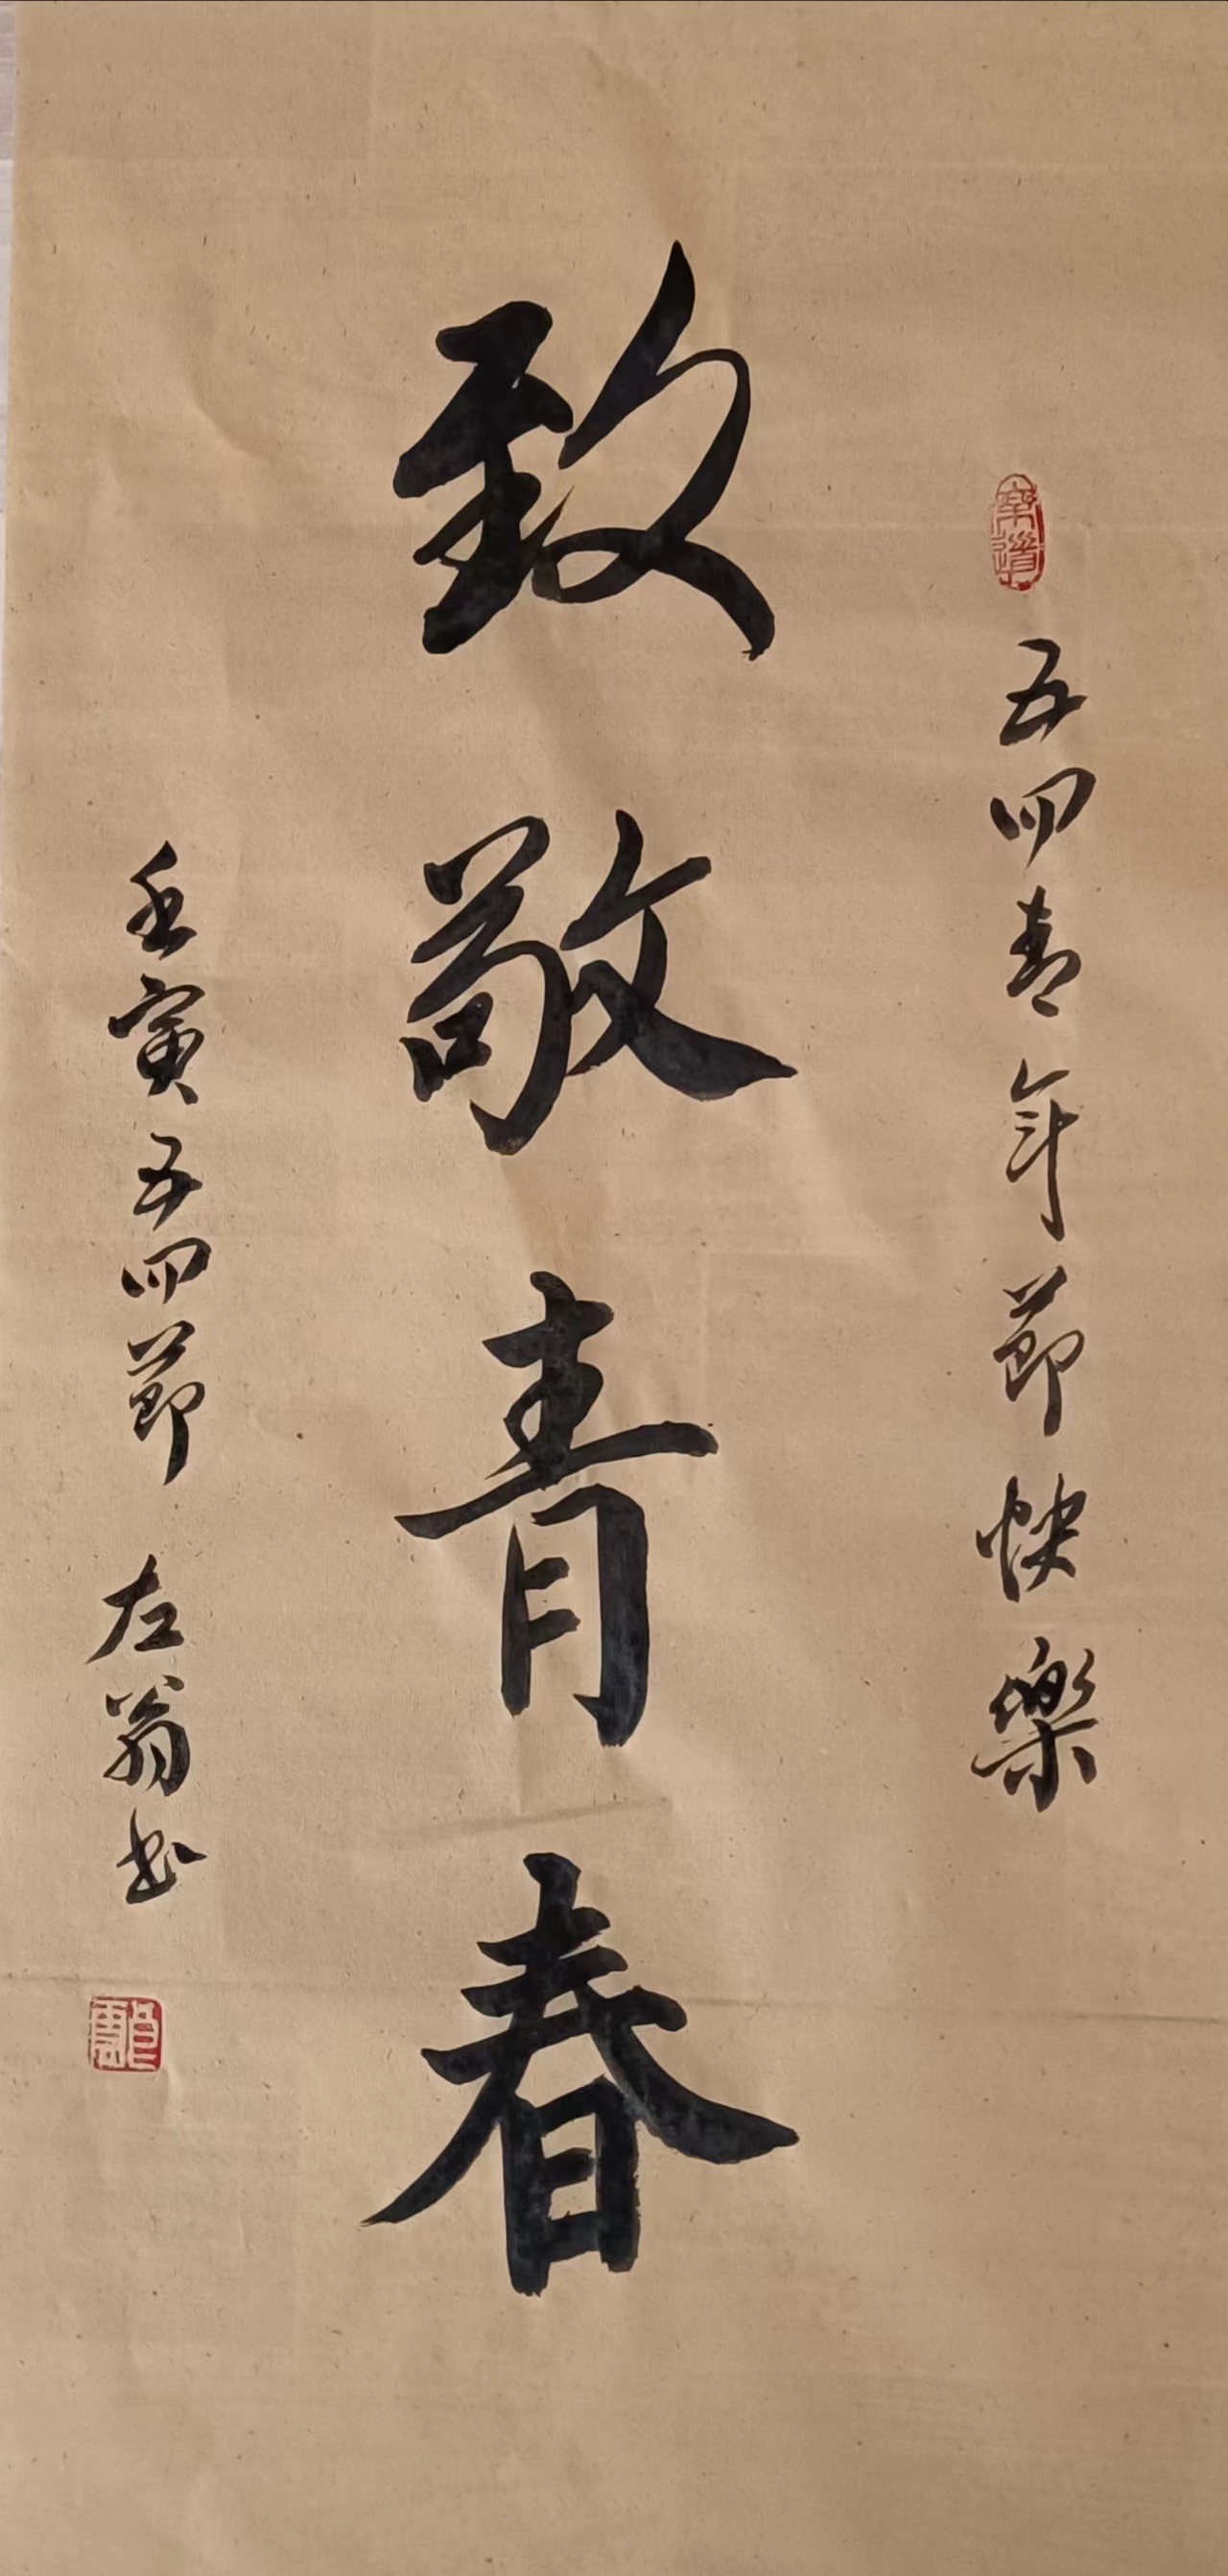 五四青年節快樂
致敬青春
壬寅五四節 左翁书